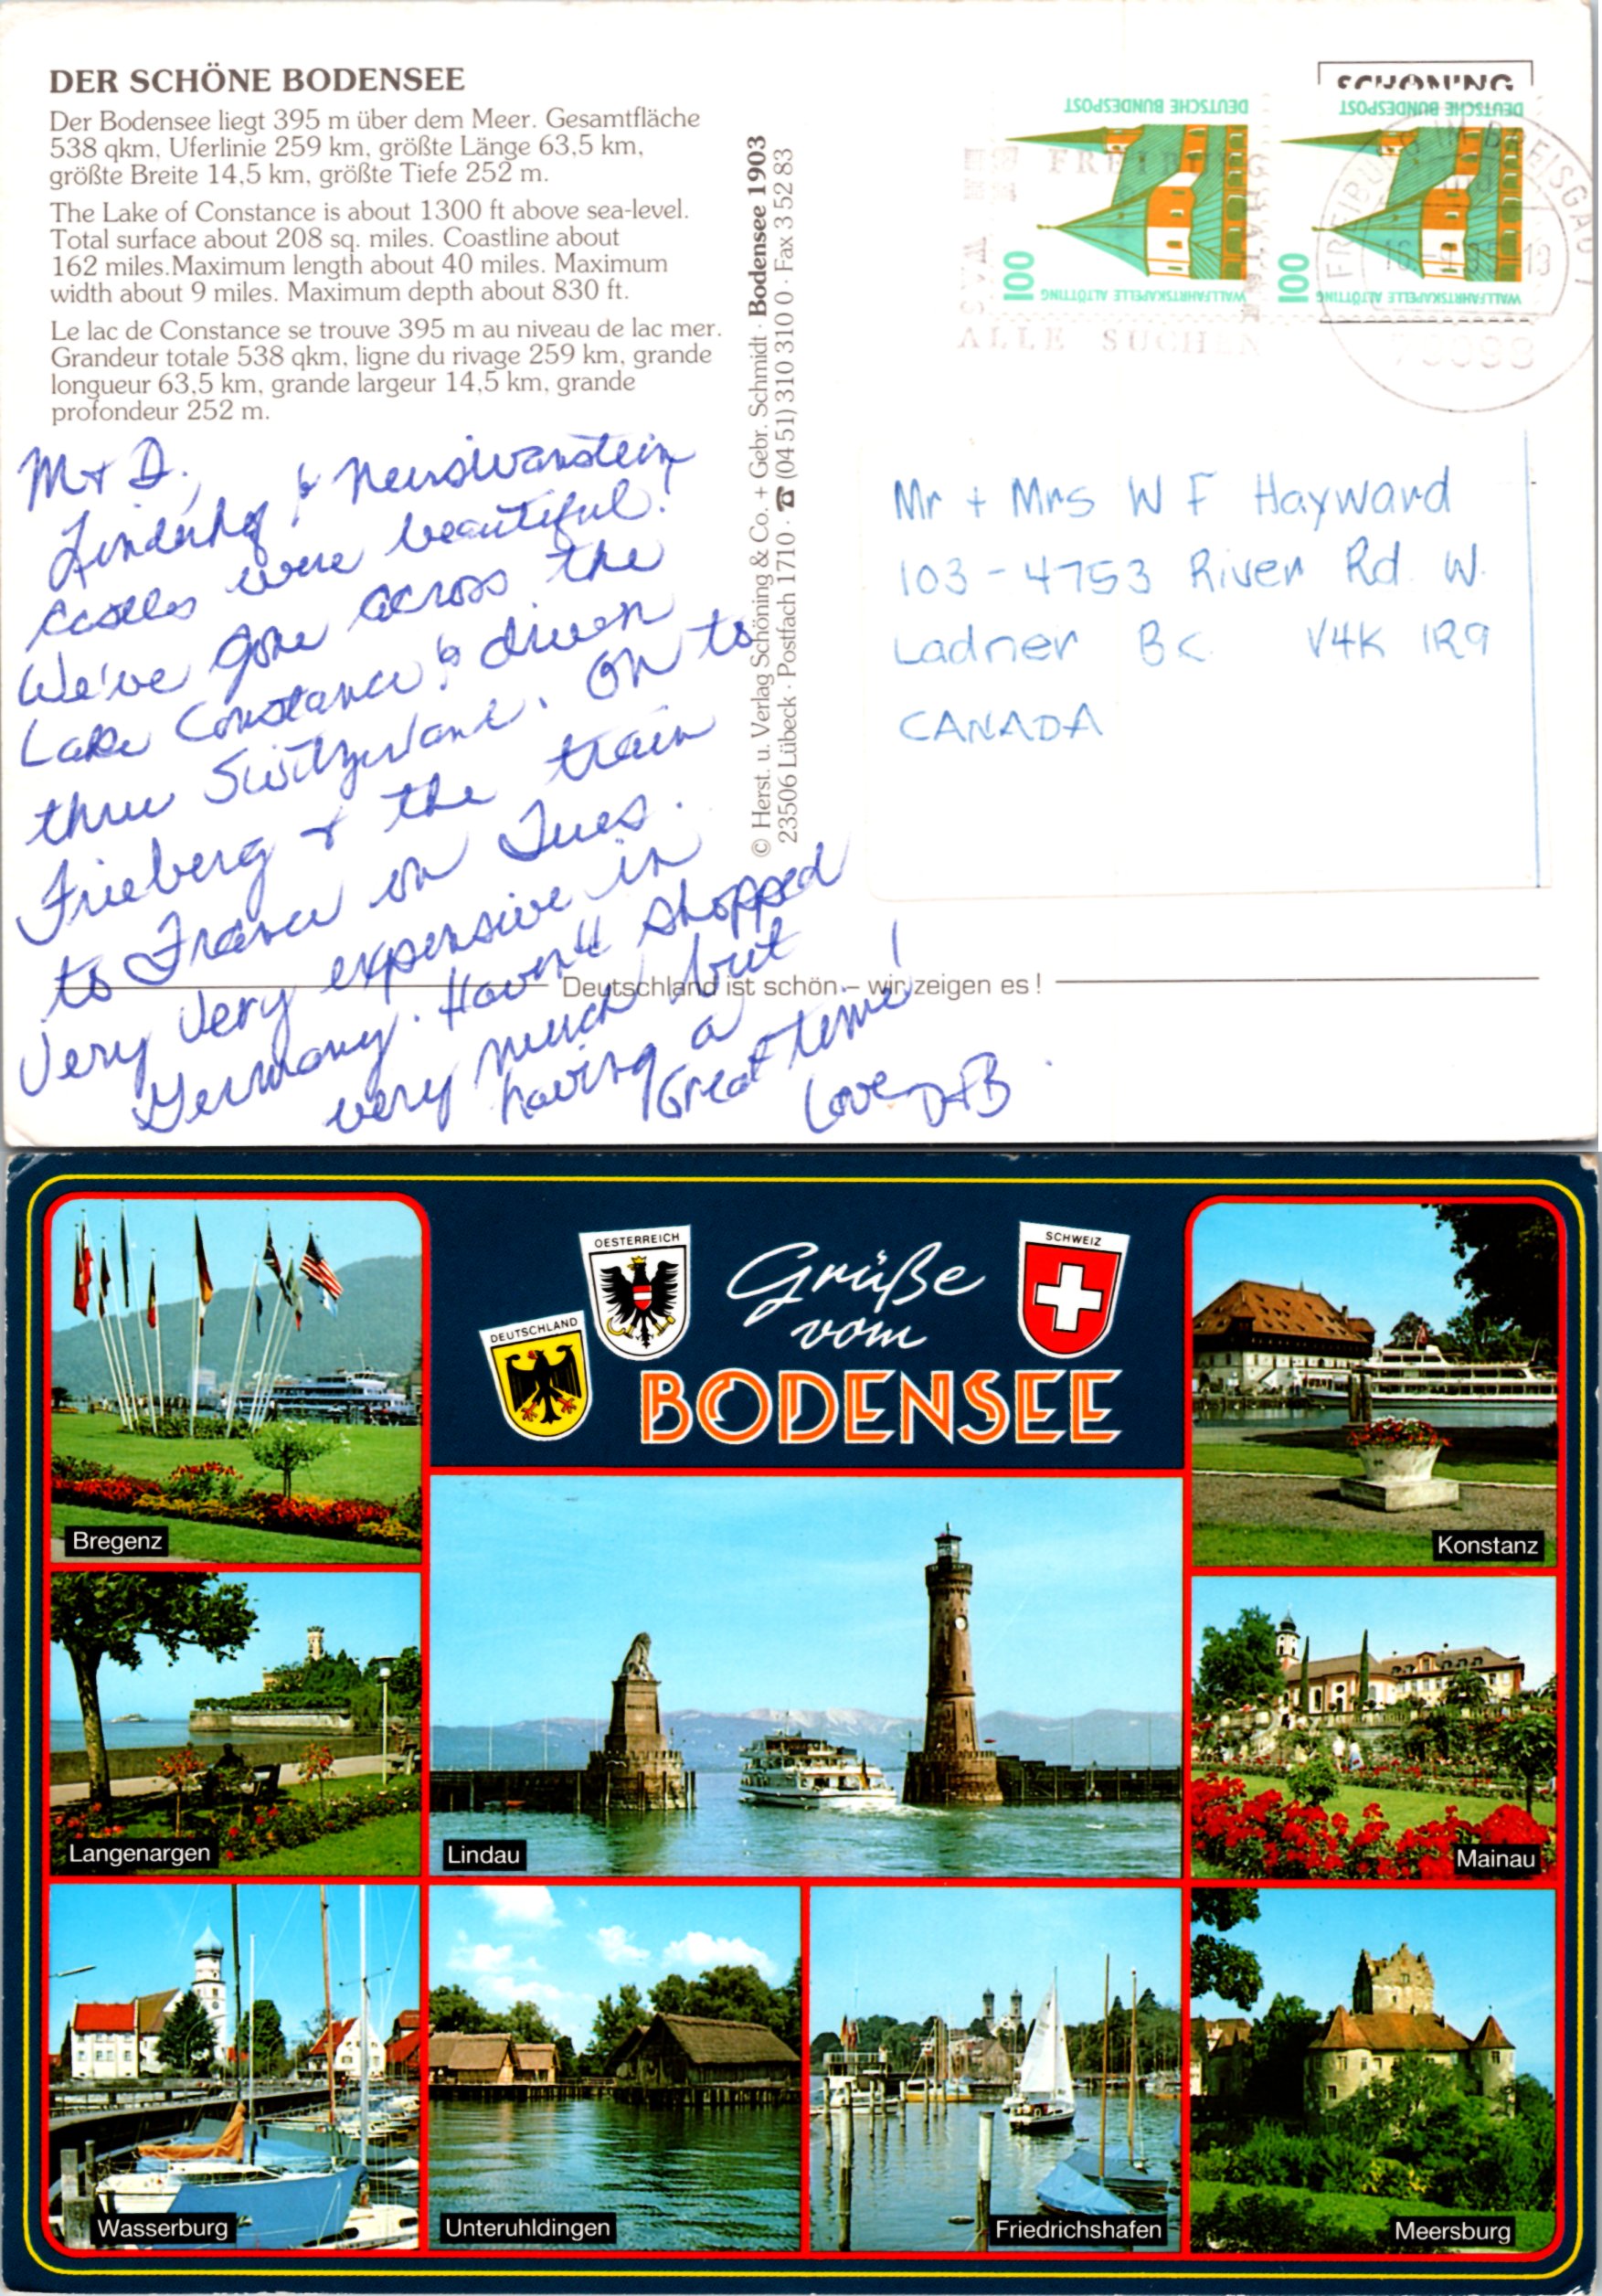 DER SCHÖNE BODENSEE
Der Bodensee liegt 395 m über dem Meer. Gesamtfläche
538 qkm, Uferlinie 259 km, größte Länge 63,5 km,
größte Breite 14,5 km, größte Tiefe 252 m.
The Lake of Constance is about 1300 ft above sea-level.
Total surface about 208 sq. miles. Coastline about
162 miles.Maximum length about 40 miles. Maximum
width about 9 miles. Maximum depth about 830 ft.
Le lac de Constance se trouve 395 m au niveau de lac mer.
Grandeur totale 538 qkm, ligne du rivage 259 km, grande
longueur 63,5 km, grande largeur 14,5 km, grande
profondeur 252 m.
M + D.,
Linderhof & Neuswanstein
castles were beautiful!
We've gone across the
Lake Constance & driven
thru Switzerland. On to
Frieberg & the train
to France on Tues.
Very Very expensive in
Germany. Haven't shopped
very much but
having a
Great time!
Love D+B
© Herst. u. Verlag Schöning & Co. + Gebr. Schmidt · Bodensee 1903
23506 Lübeck · Postfach 1710 · ☎ (04 51) 310 310 0 · Fax 3 52 83
SCHÖNING
DEUTSCHE BUNDESPOST
WALLFAHRTSKAPELLE ALTÖTTING
100
DEUTSCHE BUNDESPOST
WALLFAHRTSKAPELLE ALTÖTTING
100
FREIBURG
ALLE SUCHEN
FREIBURG IM BREISGAU 1
Mr + Mrs W F Hayward
103 - 4753 River Rd. W.
Ladner BC V4K 1R9
CANADA
Deutschland ist schön – wir zeigen es!
OESTERREICH
DEUTSCHLAND
SCHWEIZ
Grüße
vom
BODENSEE
Bregenz
Konstanz
Langenargen
Lindau
Mainau
Wasserburg
Unteruhldingen
Friedrichshafen
Meersburg